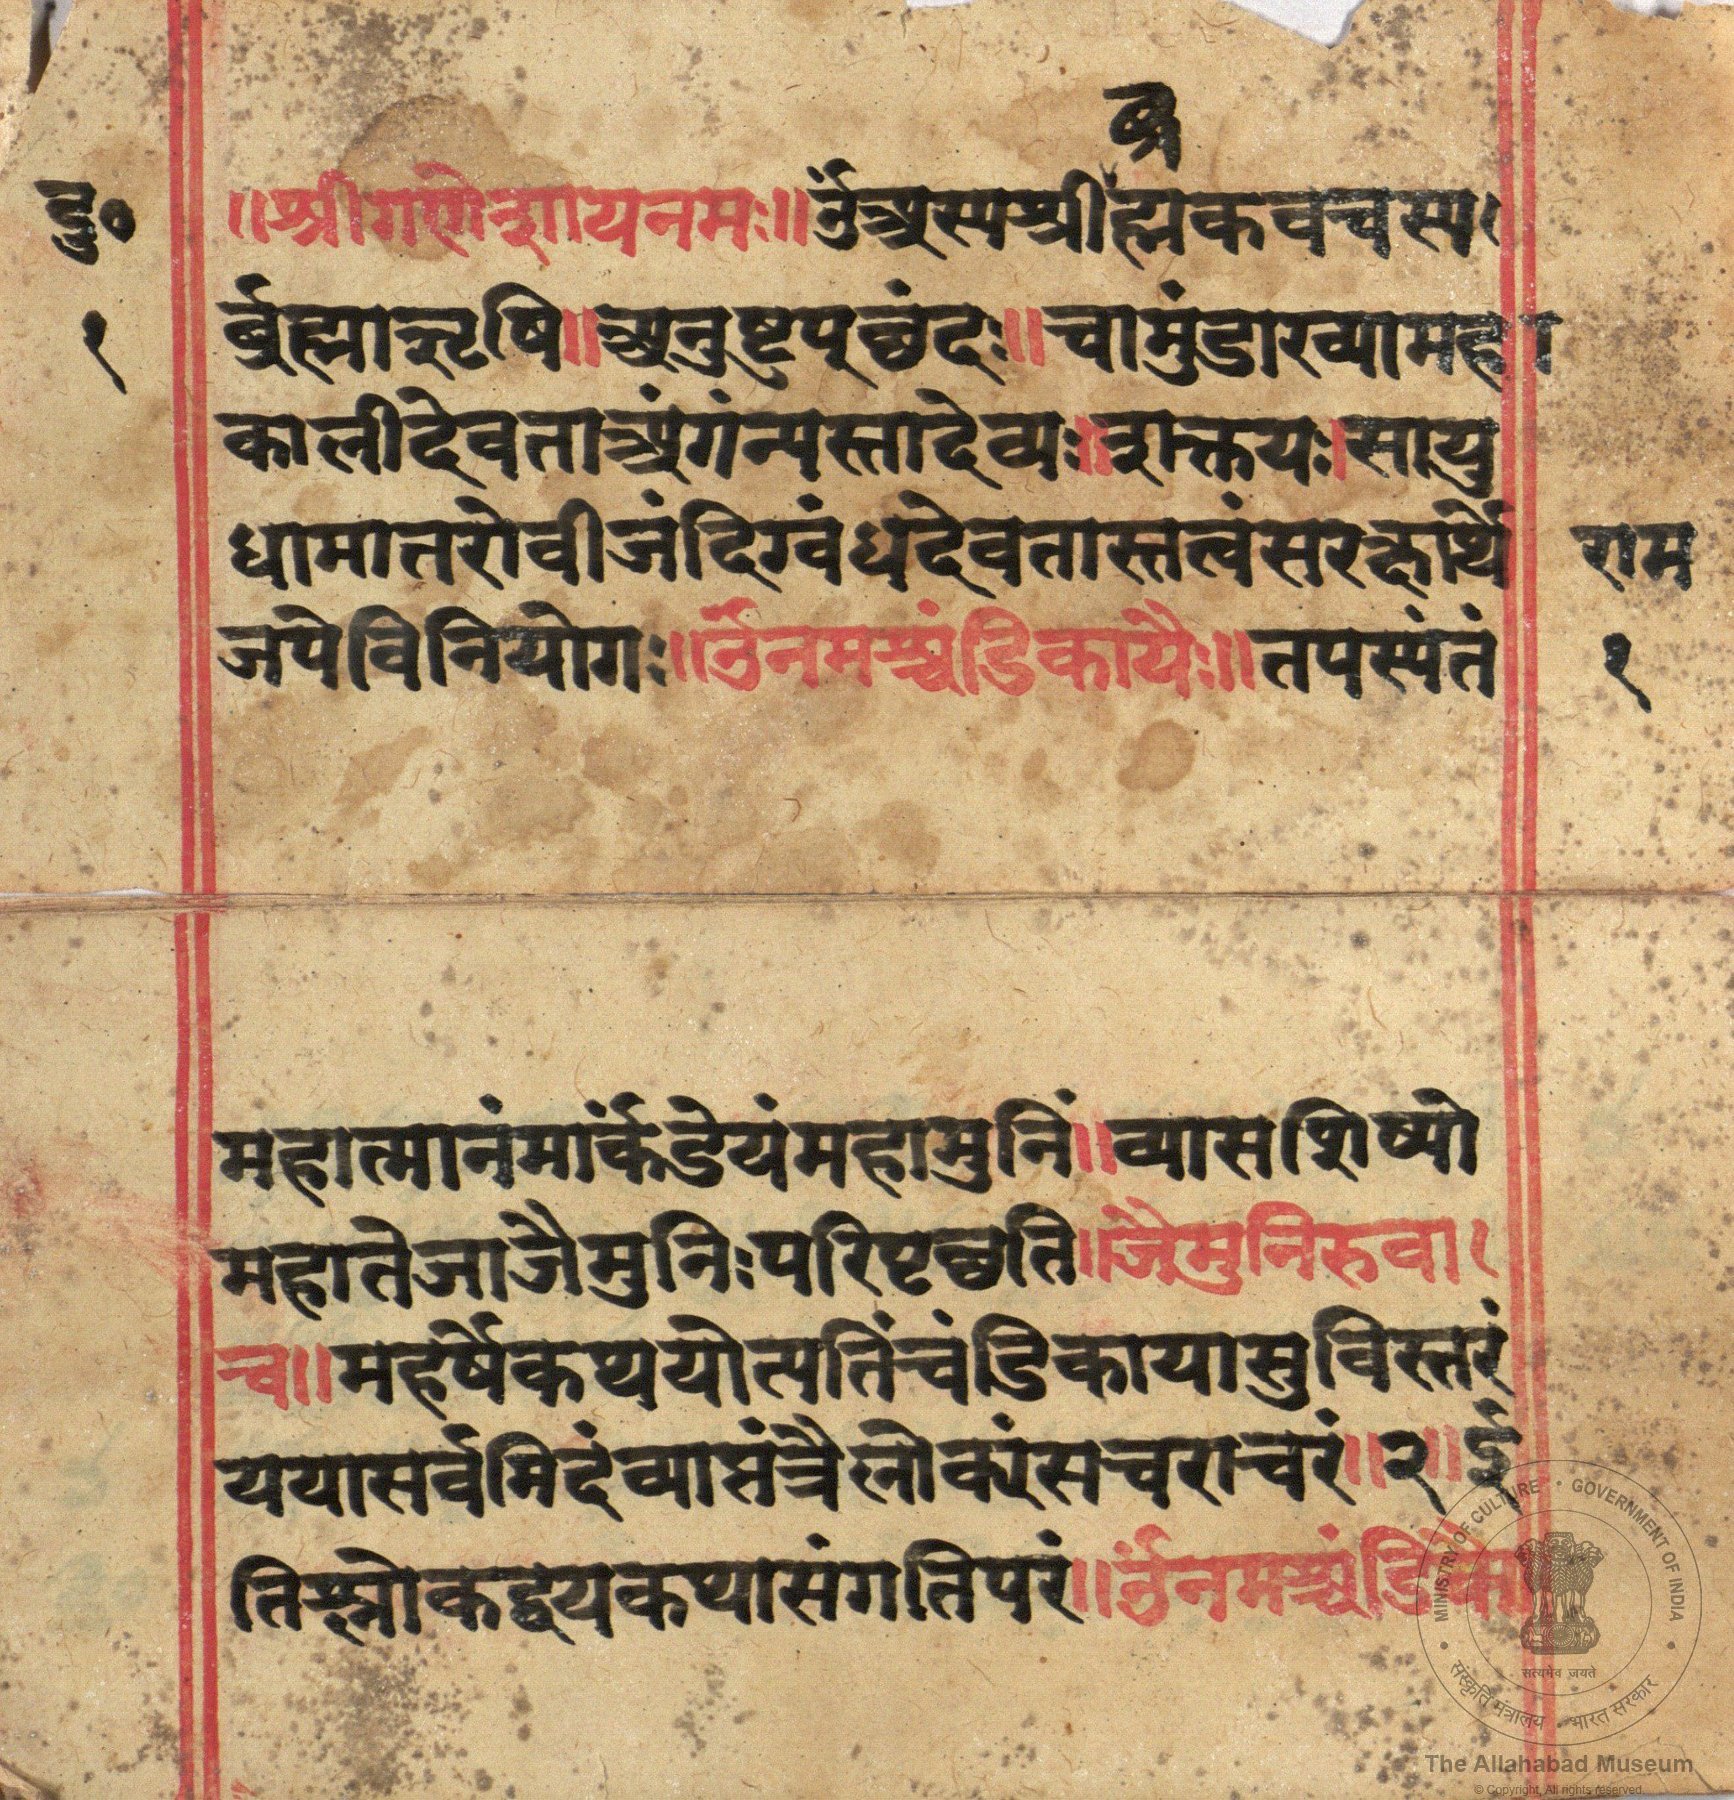 ब्र
दु० ॥श्रीगणेशायनमः॥ ॐअस्यश्रीह्मकवचस्य।
१ र्ब्रह्माऋषि॥अनुष्टप्छंदः॥चामुंडाख्यामहा
कालीदेवताअंगंन्यस्तादेव्यः॥शक्तयः।सायु
धामातरोवीजंदिग्वंधदेवतास्तत्वंसरक्षार्थे राम
जपेविनियोगः॥ॐनमश्चंडिकायैः॥तपस्यंतं १
महात्मानंमार्कंडेयंमहामुनिं॥व्यासशिष्यो
महातेजाजैमुनिःपरिपृच्छति॥जैमुनिरुवा।
च॥महर्षेकथयोत्पतिंचंडिकायासुविस्तरं
ययासर्वमिदंव्याप्तंत्रैलोक्यंसचराचरं॥२॥ई
तिश्लोकद्वयकथासंगतिपरं॥ॐनमश्चंडिका
MINISTRY OF CULTURE • GOVERNMENT OF INDIA
सत्यमेव जयते
संस्कृति मंत्रालय भारत सरकार
The Allahabad Museum
© Copyright, All rights reserved.